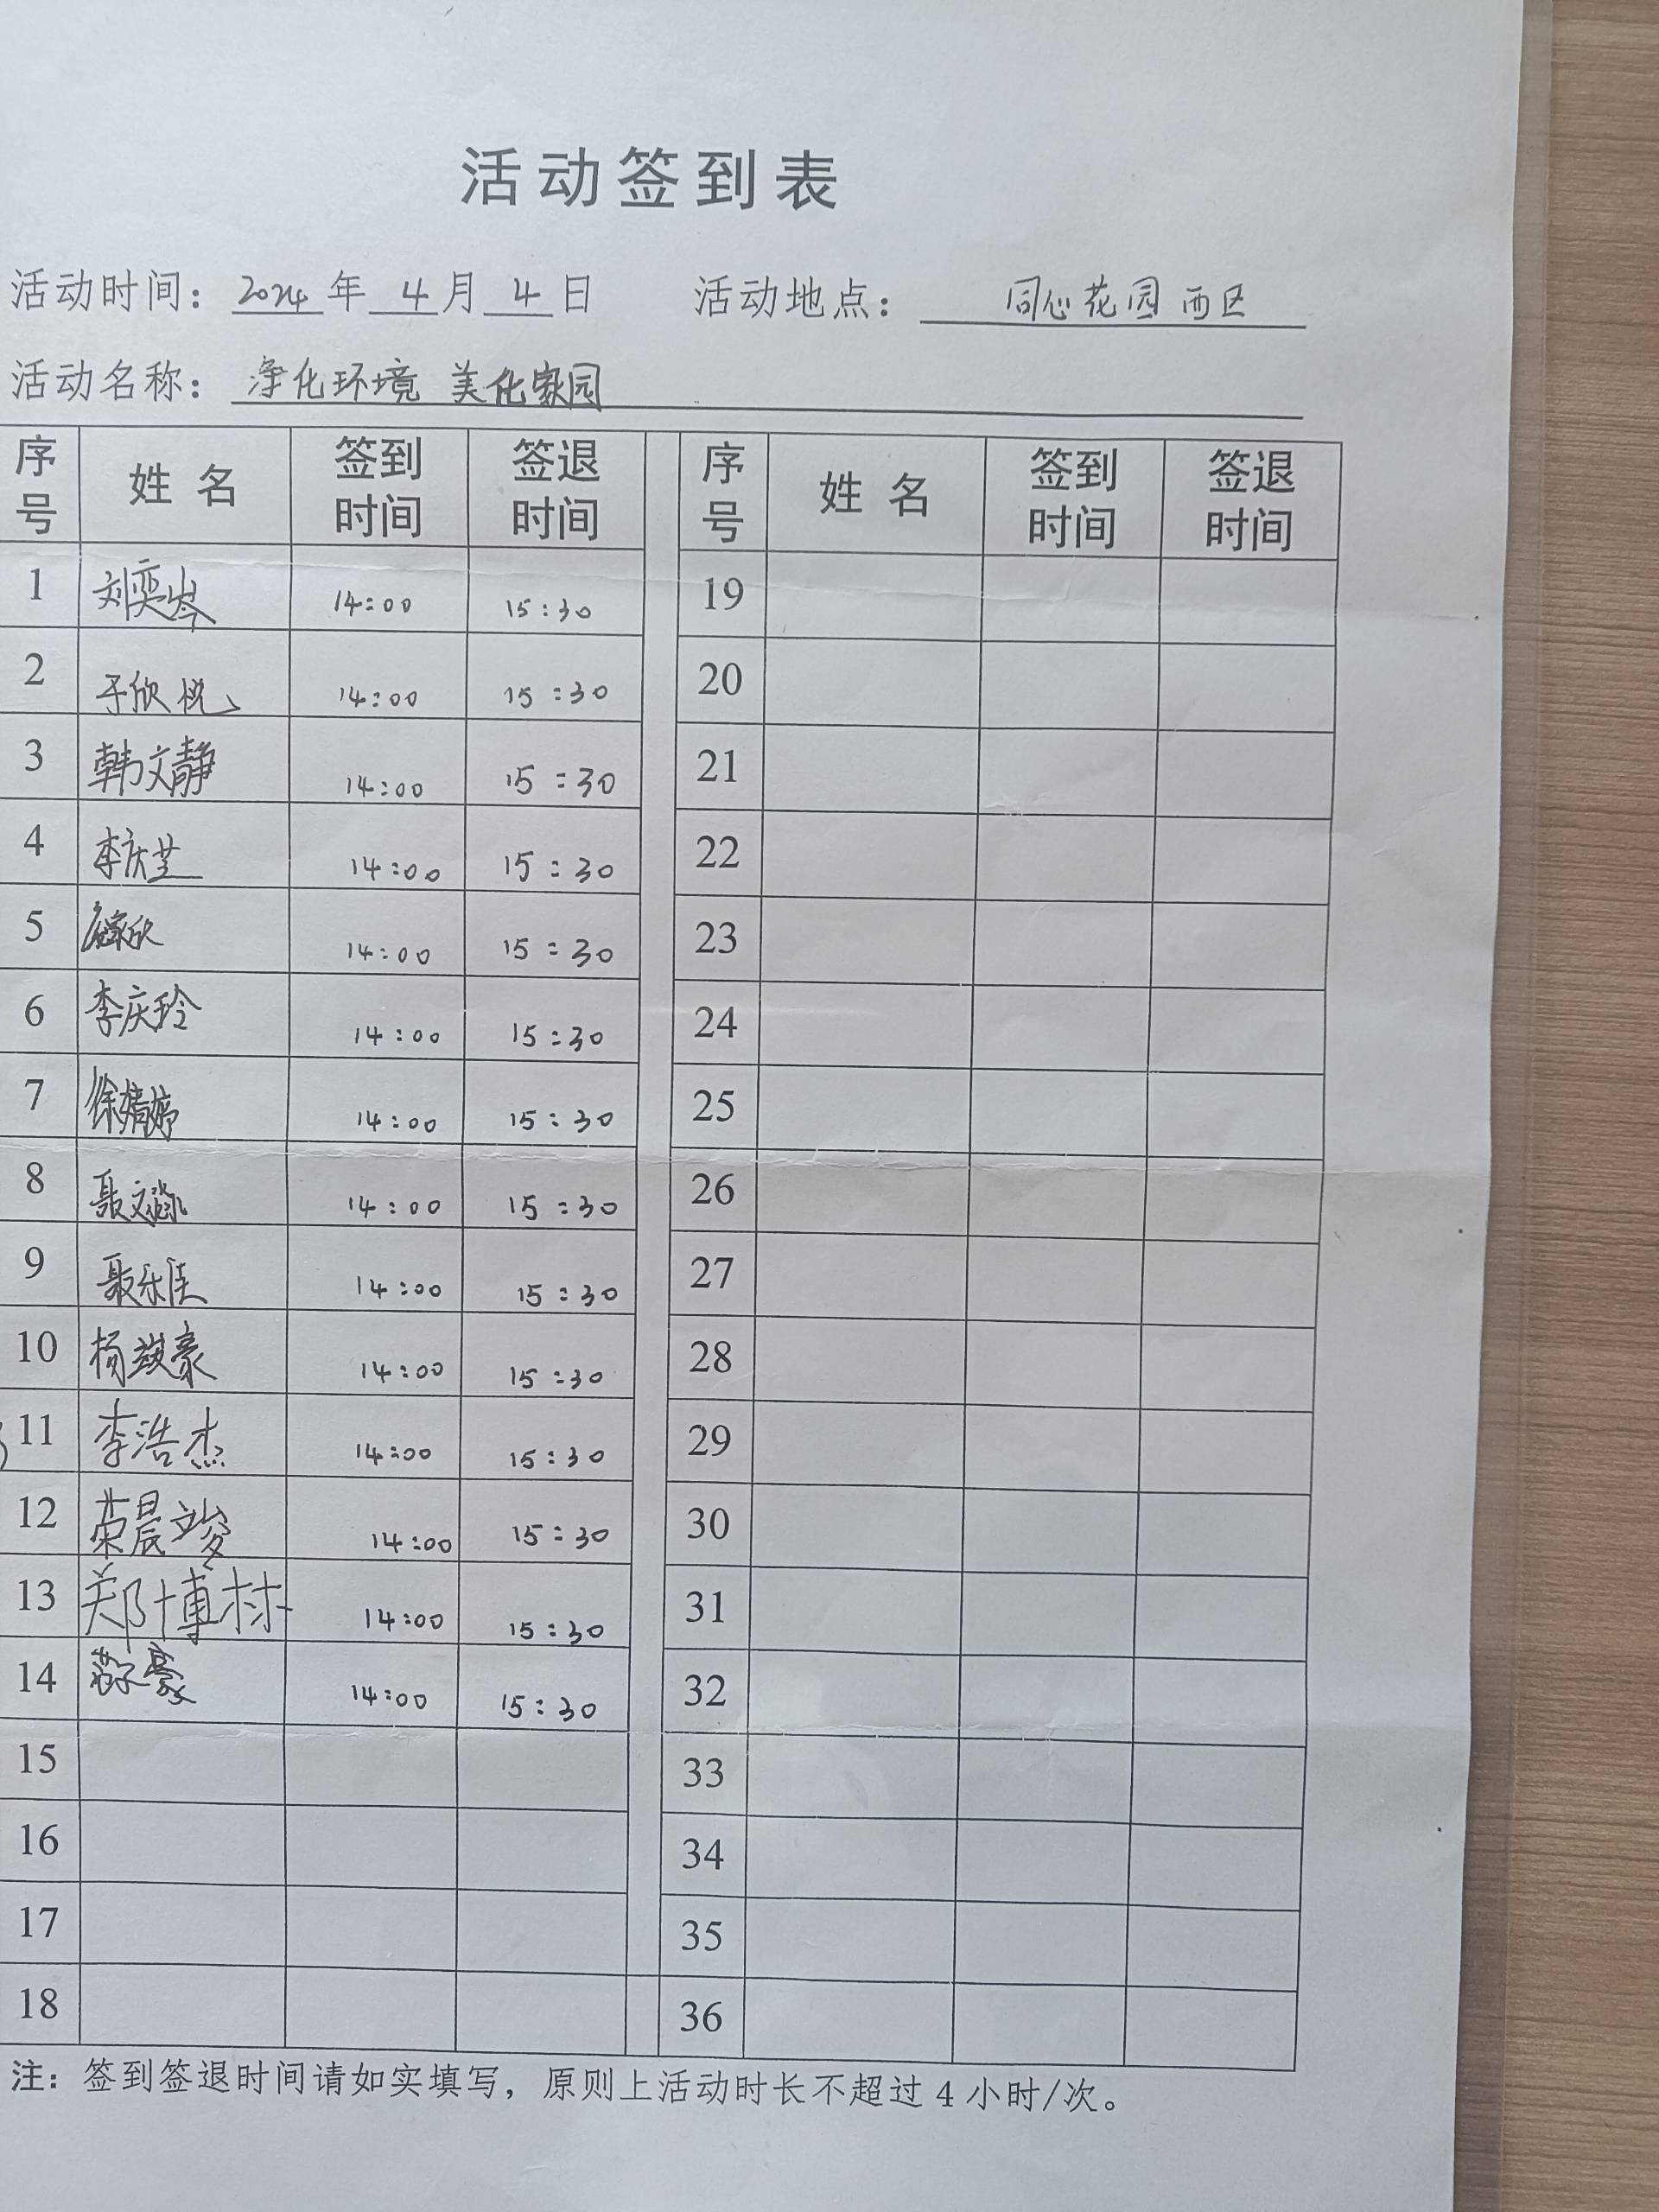 活动签到表
活动时间: 2024 年 4 月 4 日 活动地点: 同心花园西区
活动名称: 净化环境 美化家园
序号 姓名 签到时间 签退时间 序号 姓名 签到时间 签退时间
1 刘奕岑 14:00 15:30 19
2 于欣悦 14:00 15:30 20
3 韩文静 14:00 15:30 21
4 李庆芝 14:00 15:30 22
5 14:00 15:30 23
6 李庆玲 14:00 15:30 24
7 徐婧婷 14:00 15:30 25
8 聂文 14:00 15:30 26
9 聂乐佳 14:00 15:30 27
10 杨豪 14:00 15:30 28
11 李浩杰 14:00 15:30 29
12 荣晨竣 14:00 15:30 30
13 郑博林 14:00 15:30 31
14 豪 14:00 15:30 32
15 33
16 34
17 35
18 36
注: 签到签退时间请如实填写，原则上活动时长不超过 4 小时/次。